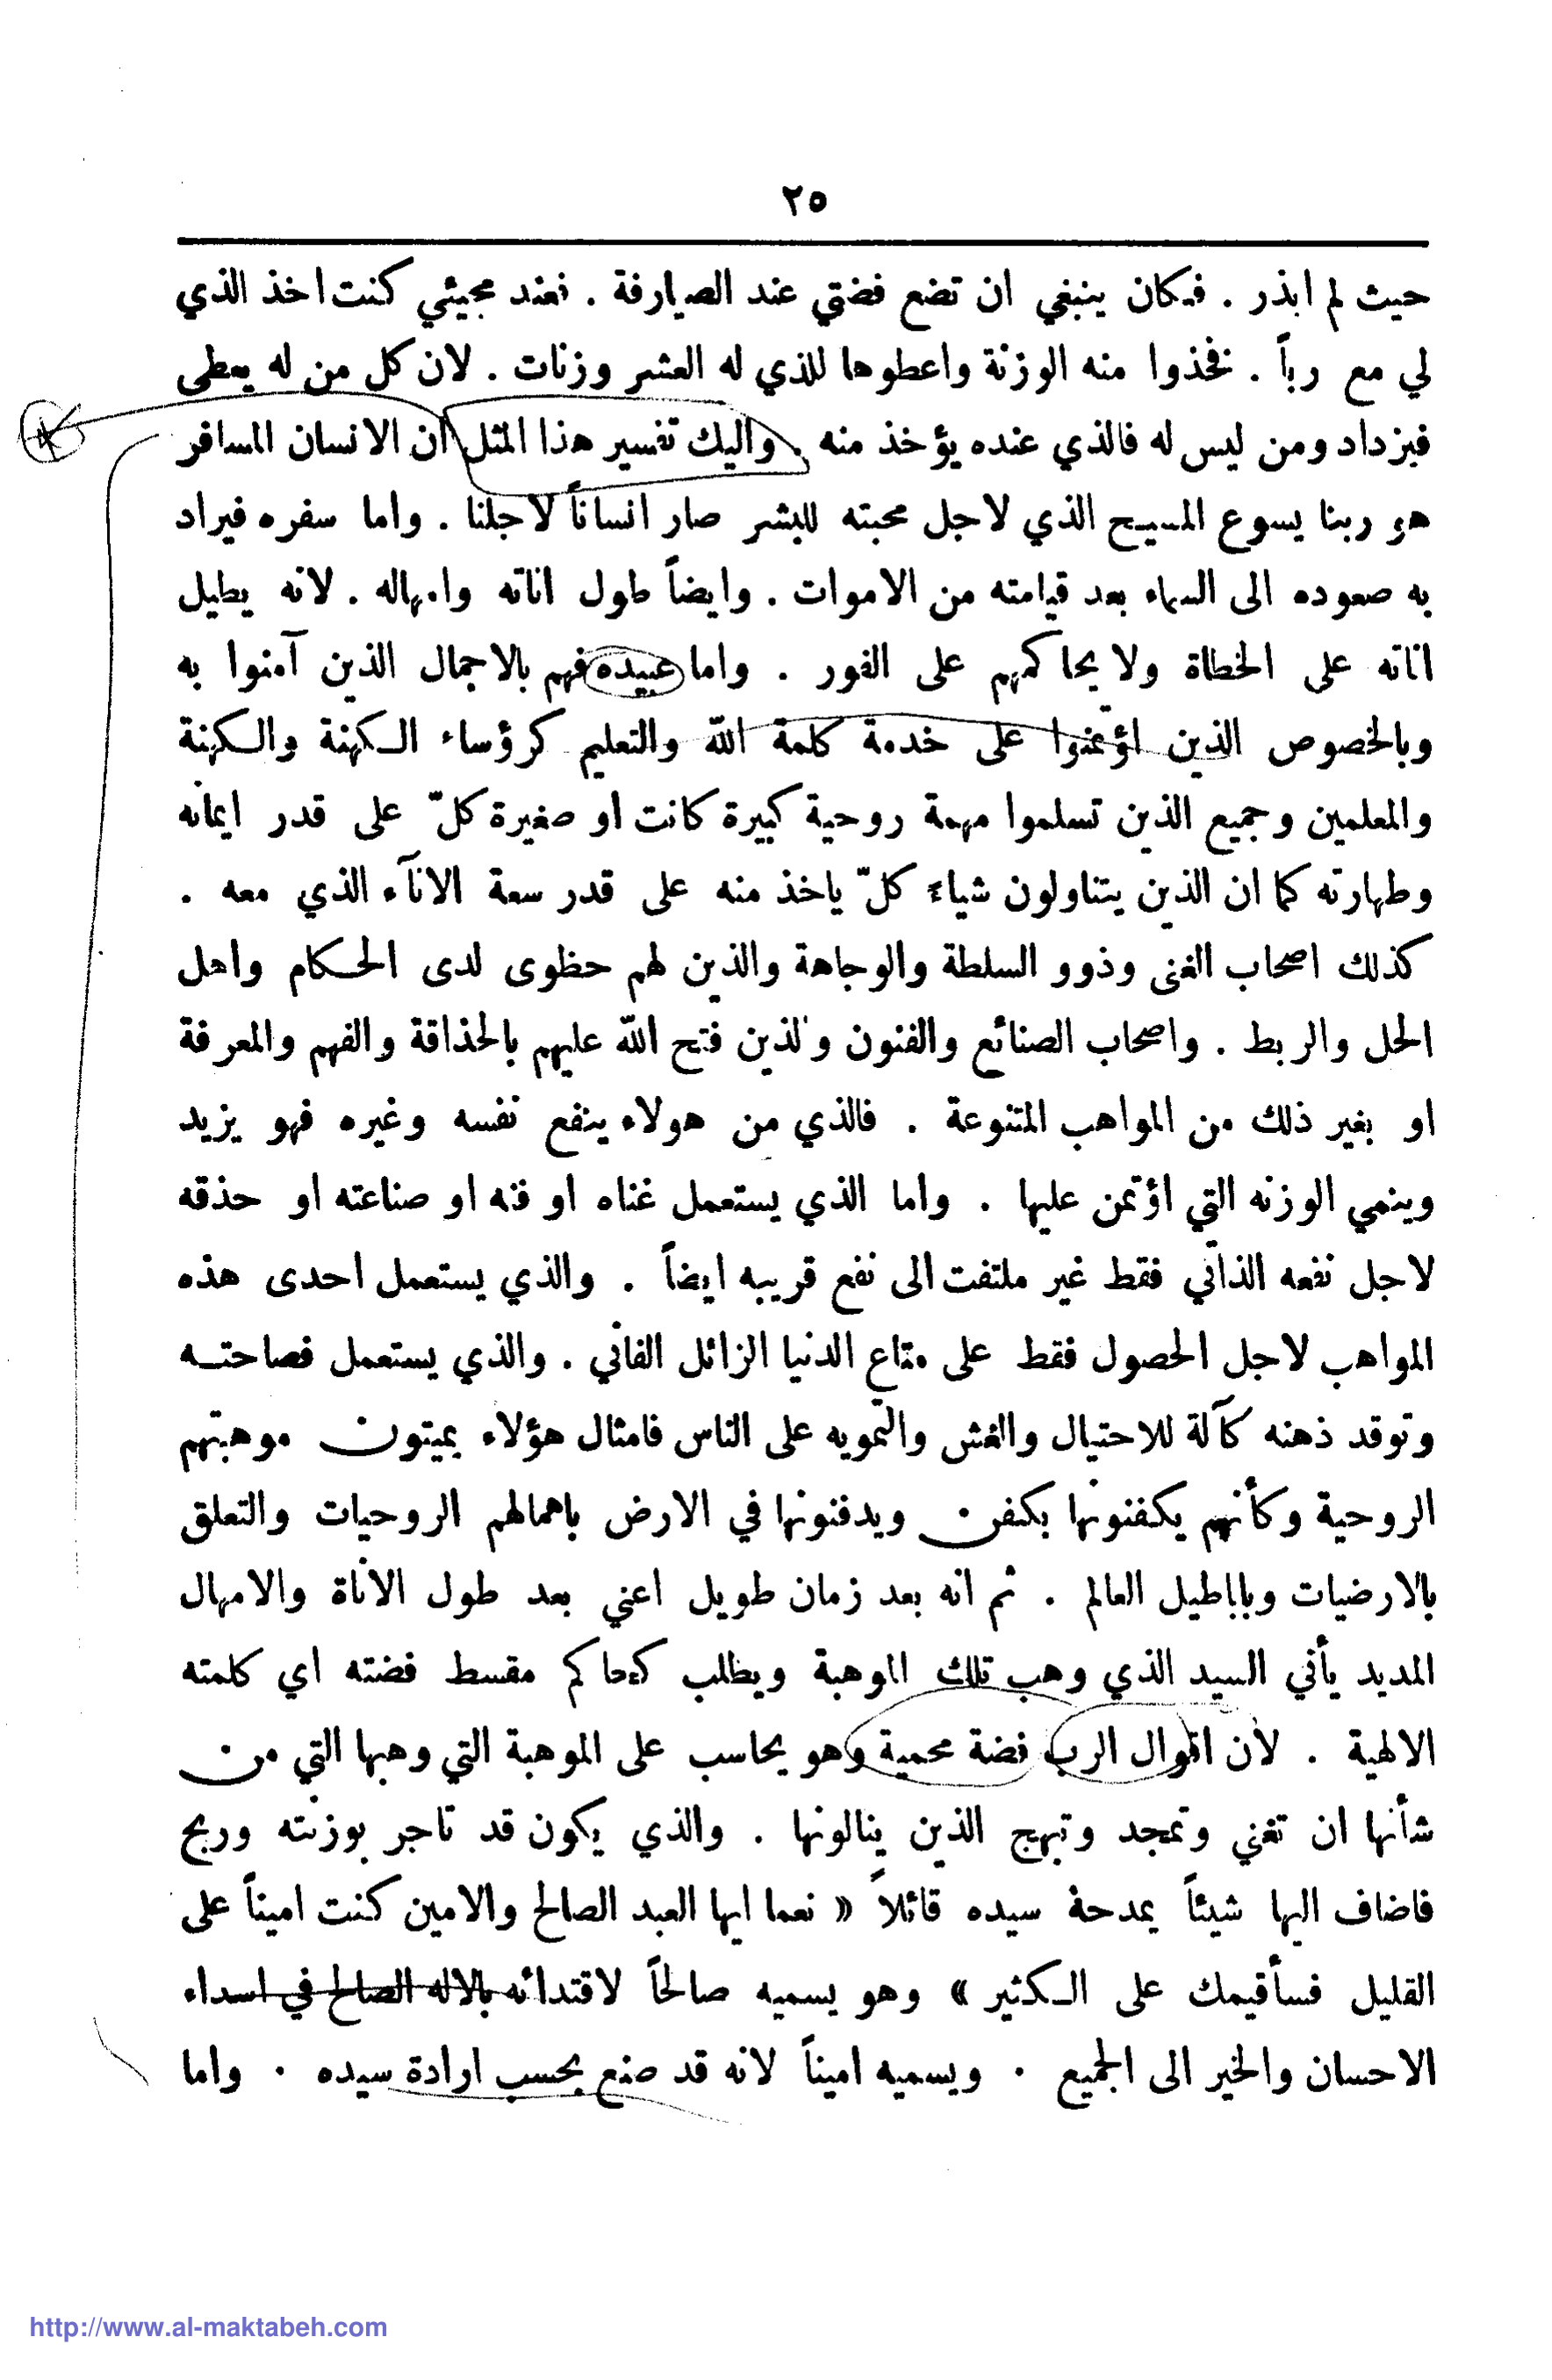 ٢٥
حيث لم ابذر . فكان ينبغي ان تضع فضتي عند الصيارفة . فعند مجيئي كنت اخذ الذي
لي مع رباً . فخذوا منه الوزنة واعطوها للذي له العشر وزنات . لان كل من له يعطى
فيزداد ومن ليس له فالذي عنده يؤخذ منه . واليك تفسير هذا المثل ان الانسان المسافر
هو ربنا يسوع المسيح الذي لاجل محبته للبشر صار انساناً لاجلنا . واما سفره فيراد
به صعوده الى السماء بعد قيامته من الاموات . وايضاً طول اناته وامهاله . لانه يطيل
اناته على الخطاة ولا يحاكمهم على الفور . واما عبيده فهم بالاجمال الذين آمنوا به
وبالخصوص الذين اؤتمنوا على خدمة كلمة الله والتعليم كرؤساء الكهنة والكهنة
والمعلمين وجميع الذين تسلموا مهمة روحية كبيرة كانت او صغيرة كلّ على قدر ايمانه
وطهارته كما ان الذين يتناولون شياءً كلّ ياخذ منه على قدر سعة الانآء الذي معه .
كذلك اصحاب الغنى وذوو السلطة والوجاهة والذين لهم حظوى لدى الحكام واهل
الحل والربط . واصحاب الصنائع والفنون والذين فتح الله عليهم بالحذاقة والفهم والمعرفة
او بغير ذلك من المواهب المتنوعة . فالذي من هولاء ينفع نفسه وغيره فهو يزيد
وينمي الوزنه التي اؤتمن عليها . واما الذي يستعمل غناه او فنه او صناعته او حذقه
لاجل نفعه الذاتي فقط غير ملتفت الى نفع قريبه ايضاً . والذي يستعمل احدى هذه
المواهب لاجل الحصول فقط على متاع الدنيا الزائل الفاني . والذي يستعمل فصاحته
وتوقد ذهنه كآلة للاحتيال والغش والتمويه على الناس فامثال هؤلاء يميتون موهبتهم
الروحية وكأنهم يكفنونها بكفن ويدفنونها في الارض باهمالهم الروحيات والتعلق
بالارضيات وباباطيل العالم . ثم انه بعد زمان طويل اعني بعد طول الاناة والامهال
المديد يأتي السيد الذي وهب تلك الموهبة ويطلب كحاكم مقسط فضته اي كلمته
الالهية . لأن اقوال الرب فضة محمية وهو يحاسب على الموهبة التي وهبها التي من
شأنها ان تغني وتمجد وتبهج الذين ينالونها . والذي يكون قد تاجر بوزنته وربح
فاضاف اليها شيئاً يمدحهٔ سيده قائلاً « نعما ايها العبد الصالح والامين كنت اميناً على
القليل فسأقيمك على الكثير » وهو يسميه صالحاً لاقتدائه بالاله الصالح في اسداء
الاحسان والخير الى الجميع . ويسميه اميناً لانه قد صنع بحسب ارادة سيده . واما
http://www.al-maktabeh.com